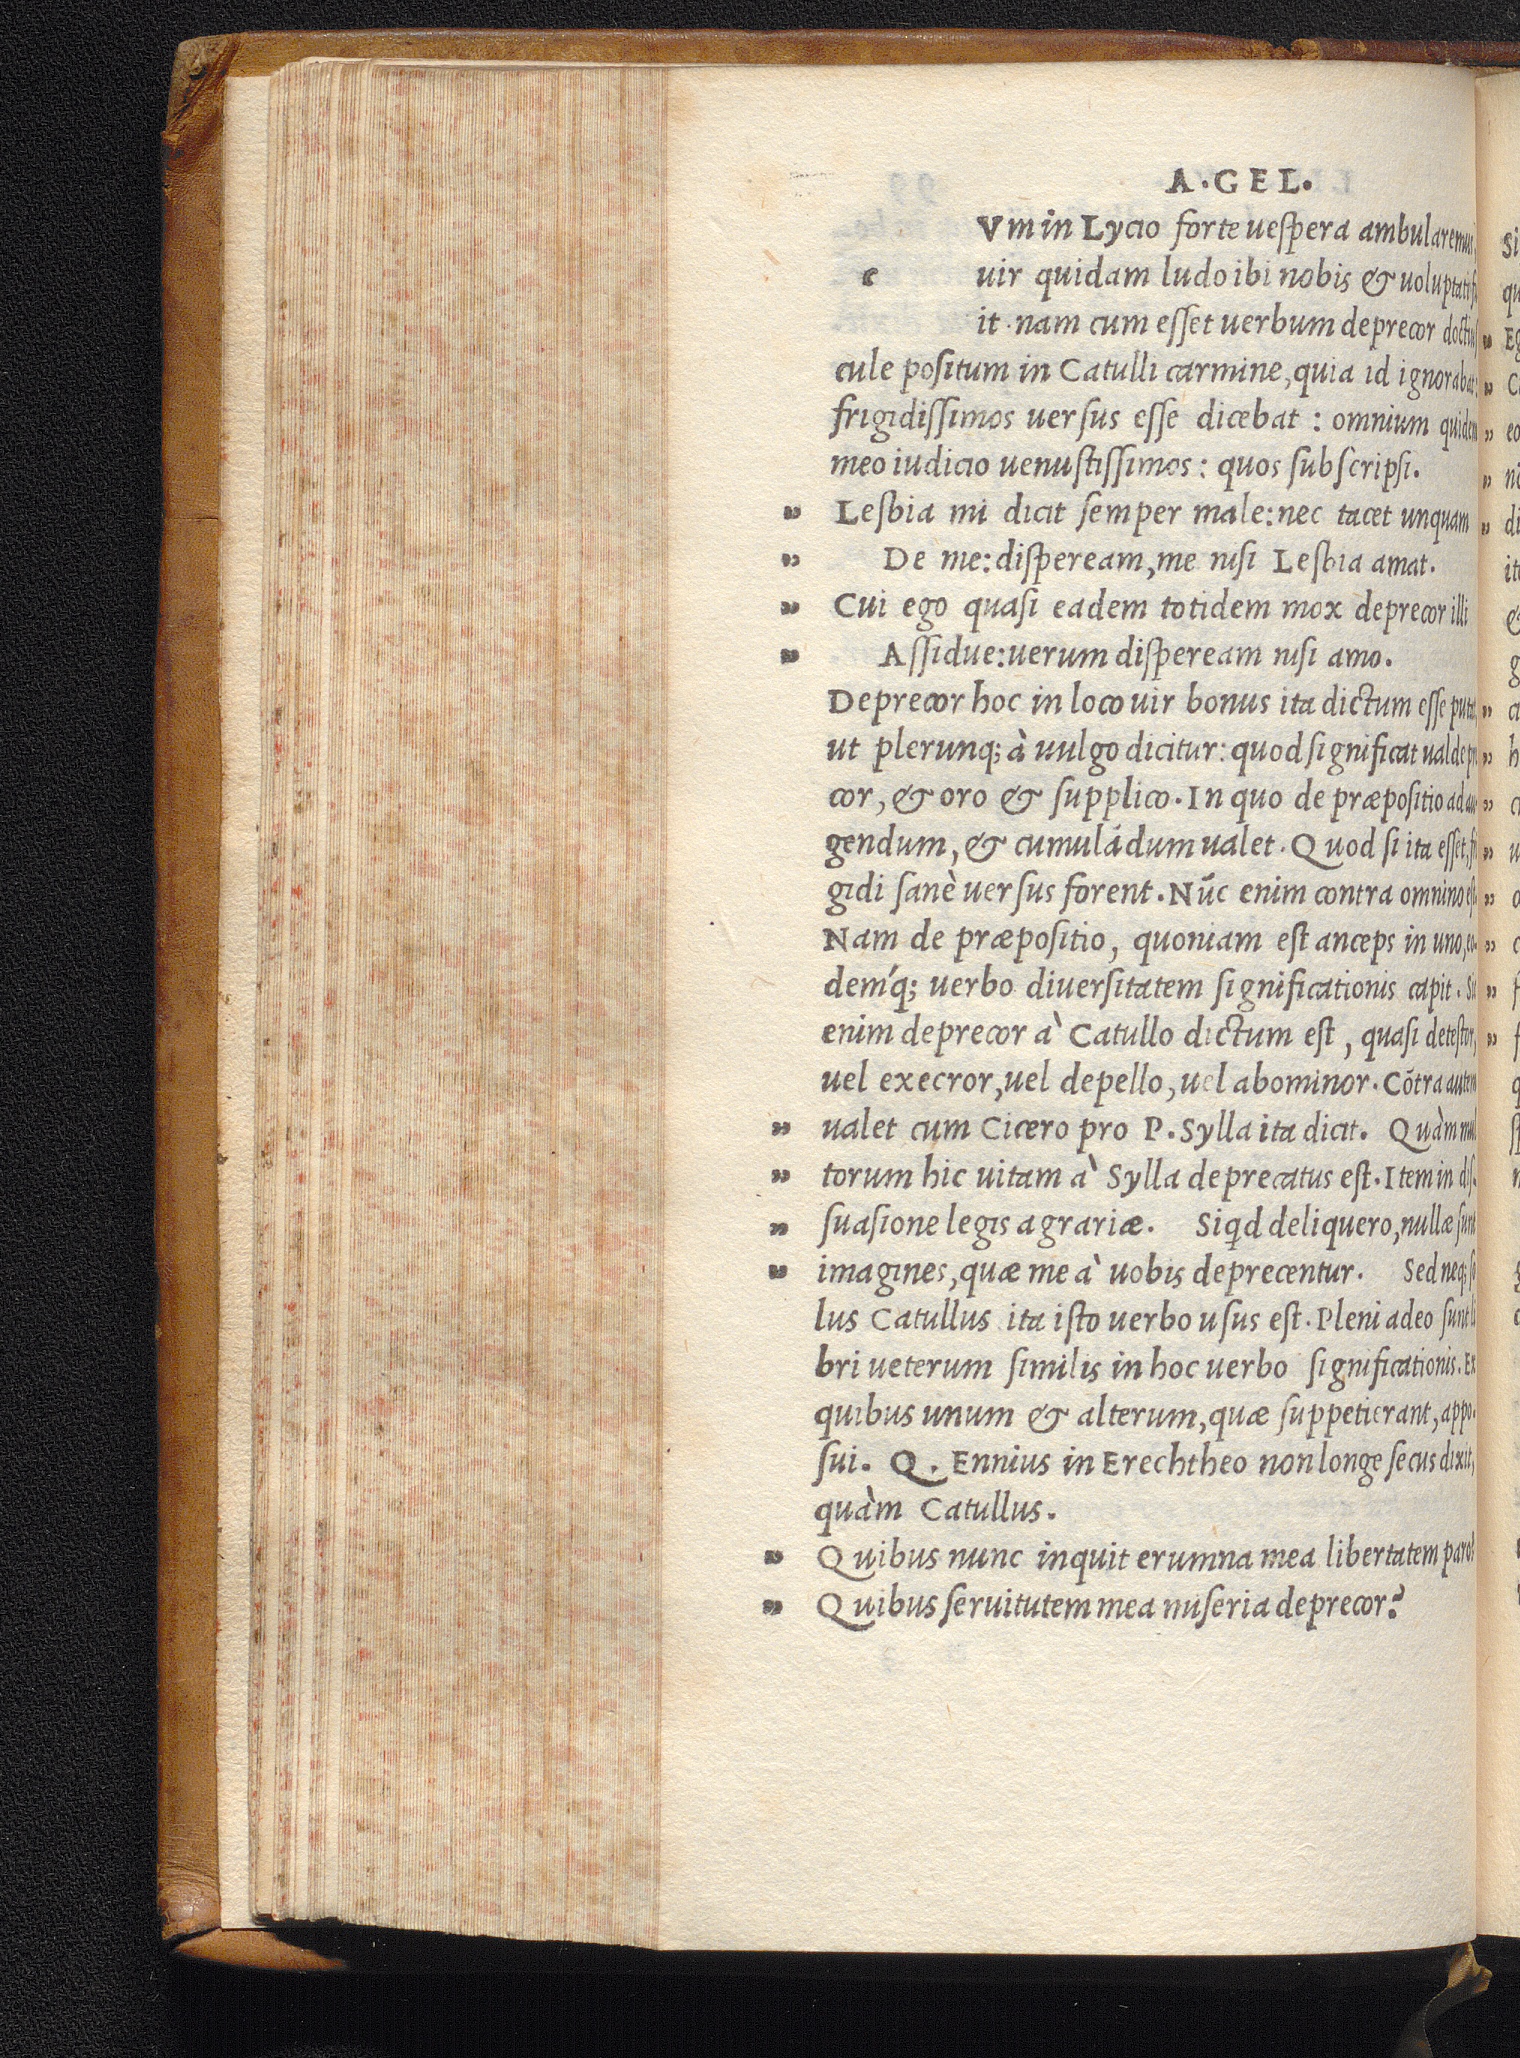 A.GEL.
Vm in Lycio forte uespera ambularemus,
c uir quidam ludo ibi nobis & uoluptati fu
it. nam cum esset uerbum deprecor doctius
cule positum in Catulli carmine, quia id ignorabat:
frigidissimos uersus esse dicebat : omnium quidem
meo iudicio uenustissimos: quos subscripsi.
” Lesbia mi dicit semper male: nec tacet unquam
” De me: dispeream, me nisi Lesbia amat.
” Cui ego quasi eadem totidem mox deprecor illi
” Assidue: uerum dispeream nisi amo.
Deprecor hoc in loco uir bonus ita dictum esse
ut plerunq; à uulgo dicitur: quod significat ualde
cor, & oro & supplico. In quo de præpositio ad
gendum, & cumulādum ualet. Quod si ita esset,
gidi sanè uersus forent. Nūc enim contra omnino
Nam de præpositio, quoniam est anceps in uno,
dem´q; uerbo diuersitatem significationis capit.
enim deprecor à Catullo dictum est, quasi detestor,
uel execror, uel depello, uel abominor. Cōtra autem
” ualet cum Cicero pro P. Sylla ita dicit. Quàm mul
” torum hic uitam à Sylla deprecatus est. Item in dis.
” suasione legis agrariæ. Siqd deliquero, nullæ sunt
” imagines, quæ me à uobis deprecentur. Sed neq; so
lus Catullus ita isto uerbo usus est. Pleni adeo sunt li
bri ueterum similis in hoc uerbo significationis. Ex
quibus unum & alterum, quæ suppetierant, appo-
sui. Q. Ennius in Erechtheo non longe secus dixit,
quàm Catullus.
” Quibus nunc inquit erumna mea libertatem paro?
” Quibus seruitutem mea miseria deprecor?